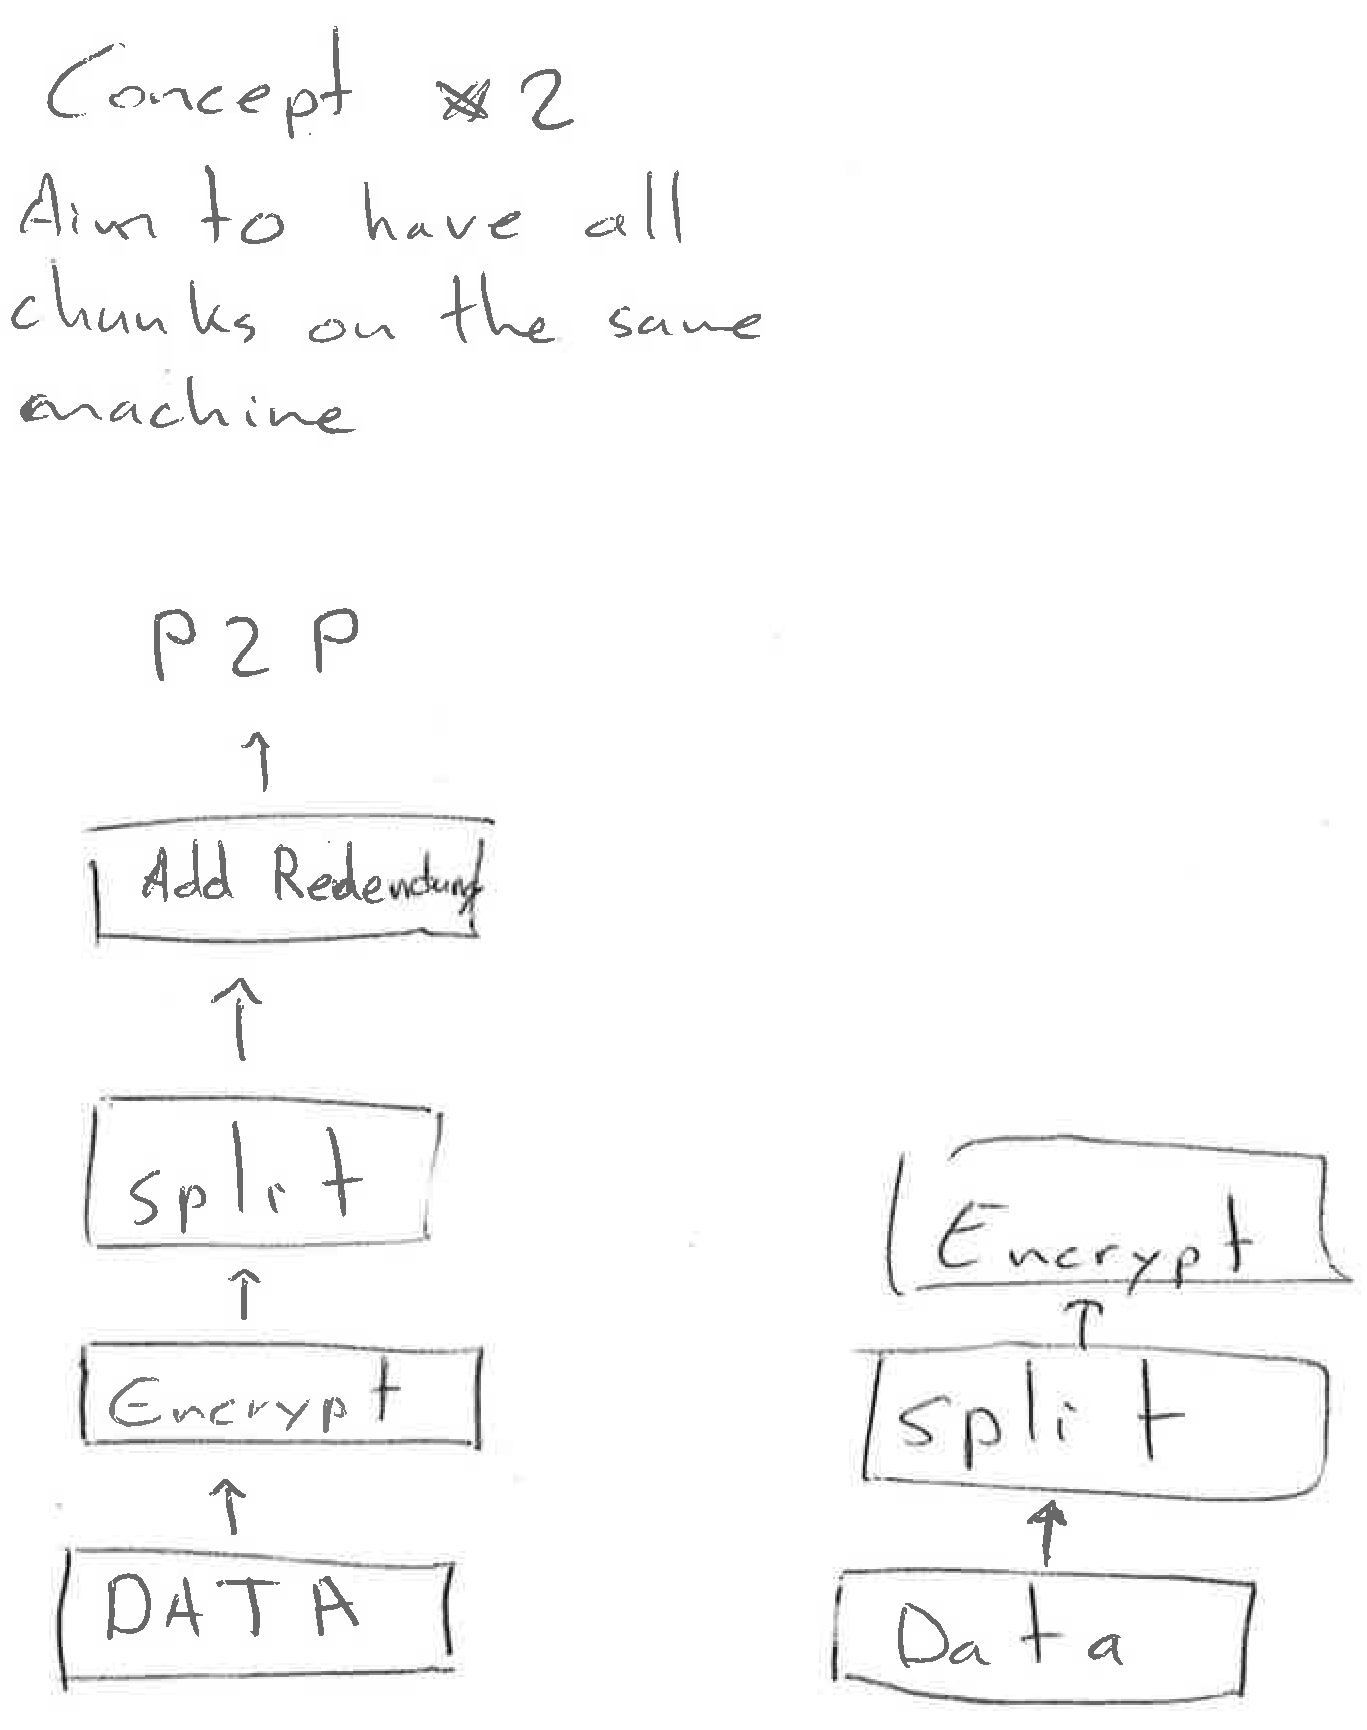 Concept 2
Aim to have all
chunks on the same
machine
P2P
Add Redenduncy
split
Encrypt
DATA
Encrypt
split
Data